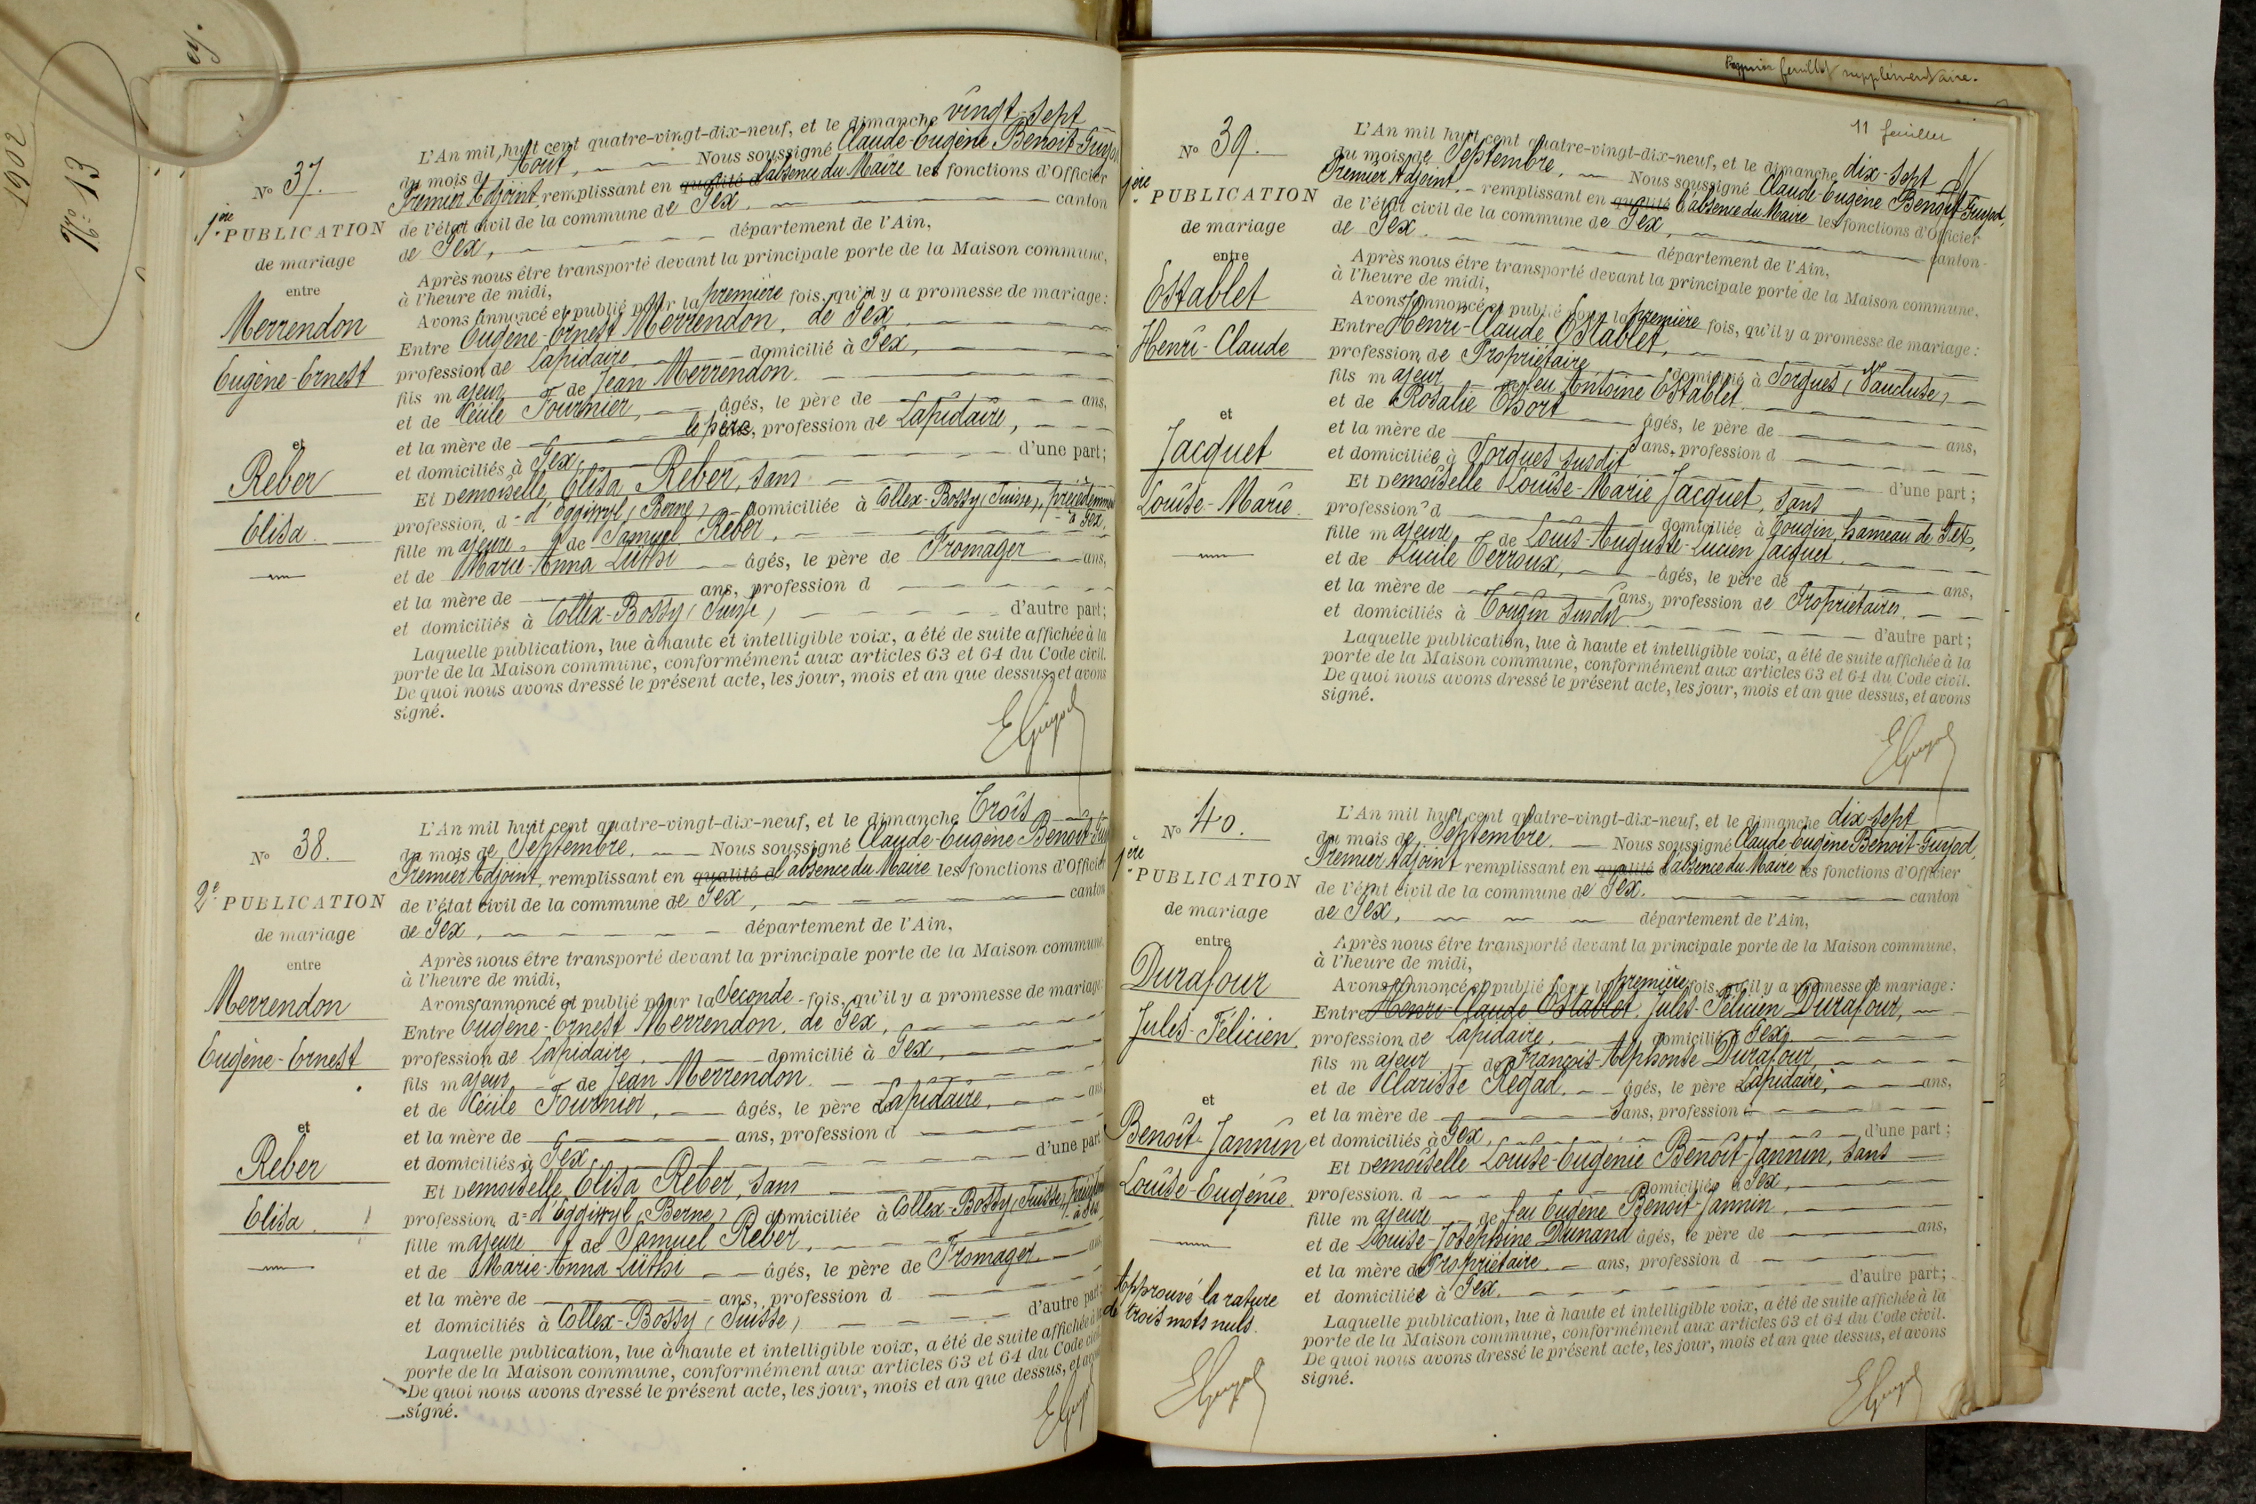 1902
N° 13
N° 37.
1ère PUBLICATION
de mariage
entre
Merrendon
Eugène-Ernest
et
Reber
Elisa
L'An mil huit cent quatre-vingt-dix-neuf, et le dimanche vingt-sept
du mois d' Août, Nous soussigné Claude-Eugène Benoit-Gujod
Premier Adjoint, remplissant en qualité d l'absence du Maire les fonctions d'Officier
de l'état civil de la commune de Gex, canton
de Gex, département de l'Ain,
Après nous être transporté devant la principale porte de la Maison commune,
à l'heure de midi,
Avons annoncé et publié pour la première fois, qu'il y a promesse de mariage:
Entre Eugène-Ernest Merrendon, de Gex
profession de Lapidaire, domicilié à Gex,
fils majeur de Jean Merrendon.
et de Cécile Fournier, âgés, le père de ans,
et la mère de le père, profession de Lapidaire,
et domiciliés à Gex, d'une part;
Et Demoiselle Elisa Reber, sans
profession d - d'Eggiwyl, (Berne), domiciliée à Collex-Bossy (Suisse), précédemment à Gex,
fille majeure, de Samuel Reber,
et de Marie-Anna Lüthi âgés, le père de Fromager ans,
et la mère de ans, profession d
et domiciliés à Collex-Bossy (Suisse) d'autre part;
Laquelle publication, lue à haute et intelligible voix, a été de suite affichée à la
porte de la Maison commune, conformément aux articles 63 et 64 du Code civil.
De quoi nous avons dressé le présent acte, les jour, mois et an que dessus, et avons
signé.
EGujod
N° 38.
2e PUBLICATION
de mariage
entre
Merrendon
Eugène-Ernest
et
Reber
Elisa.
L'An mil huit cent quatre-vingt-dix-neuf, et le dimanche Trois
du mois de Septembre. Nous soussigné Claude-Eugène Benoit-Guj
Premier Adjoint, remplissant en qualité d l'absence du Maire les fonctions d'Officier
de l'état civil de la commune de Gex, canton
de Gex, département de l'Ain,
Après nous être transporté devant la principale porte de la Maison commune,
à l'heure de midi,
Avons annoncé et publié pour la Seconde fois, qu'il y a promesse de mariage:
Entre Eugène-Ernest Merrendon, de Gex,
profession de Lapidaire, domicilié à Gex,
fils majeur de Jean Merrendon.
et de Cécile Fournier, âgés, le père de Lapidaire, ans
et la mère de ans, profession d
et domiciliés à Gex d'une part
Et Demoiselle Elisa Reber, sans
profession d - d'Eggiwyl, (Berne,) domiciliée à Collex-Bossy (Suisse), à Gex
fille majeure de Samuel Reber,
et de Marie-Anna Lüthi âgés, le père de Fromager ans
et la mère de ans, profession d
et domiciliés à Collex-Bossy (Suisse) d'autre part;
Laquelle publication, lue à haute et intelligible voix, a été de suite affichée à la
porte de la Maison commune, conformément aux articles 63 et 64 du Code civil
De quoi nous avons dressé le présent acte, les jour, mois et an que dessus, et avons
signé.
EGujod
Premier feuillet supplémentaire.
11 feuillet
N° 39.
1ère PUBLICATION
de mariage
entre
Establet
Henri-Claude
et
Jacquet
Louise-Marie.
L'An mil huit cent quatre-vingt-dix-neuf, et le dimanche dix-sept
du mois de Septembre. Nous soussigné Claude-Eugène Benoit-Gujod,
Premier Adjoint, remplissant en qualité l'absence du Maire les fonctions d'Officier
de l'état civil de la commune de Gex, canton
de Gex. département de l'Ain,
Après nous être transporté devant la principale porte de la Maison commune,
à l'heure de midi,
Avons annoncé et publié pour la première fois, qu'il y a promesse de mariage:
Entre Henri-Claude Establet,
profession de Propriétaire domicilié à Sorgues, (Vaucluse,)
fils majeur de feu Antoine Establet
et de Rosalie âgés, le père de ans,
et la mère de ans, profession d
et domiciliée à Sorgues susdit d'une part;
Et Demoiselle Louise-Marie Jacquet, sans
profession d domiciliée à Tougin, hameau de Gex,
fille majeure de Louis-Auguste-Lucien Jacquet
et de Lucile Terroux, âgés, le père de ans,
et la mère de ans, profession de Propriétaires.
et domiciliés à Tougin susdit d'autre part;
Laquelle publication, lue à haute et intelligible voix, a été de suite affichée à la
porte de la Maison commune, conformément aux articles 63 et 64 du Code civil.
De quoi nous avons dressé le présent acte, les jour, mois et an que dessus, et avons
signé.
EGujod
N° 40.
1ère PUBLICATION
de mariage
entre
Durafour
Jules-Félicien.
et
Benoît-Jannin
Louise-Eugénie.
Approuvé la rature
de trois mots nuls.
EGujod
L'An mil huit cent quatre-vingt-dix-neuf, et le dimanche dix-sept
du mois de Septembre. Nous soussigné Claude-Eugène Benoit-Gujod,
Premier Adjoint remplissant en qualité l'absence du Maire les fonctions d'Officier
de l'état civil de la commune de Gex. canton
de Gex, département de l'Ain,
Après nous être transporté devant la principale porte de la Maison commune,
à l'heure de midi,
Avons annoncé et publié pour la première fois, qu'il y a promesse de mariage:
Entre Henri-Claude Establet Jules-Félicien Durafour,
profession de Lapidaire, domicilié à Gex,
fils majeur de François-Alphonse Durafour,
et de Clarisse Régad. âgés, le père Lapidaire, ans,
et la mère de ans, profession d
et domiciliés à Gex, d'une part;
Et Demoiselle Louise-Eugénie Benoît-Jannin, sans
profession d domiciliée à Gex,
fille majeure de feu Eugène Benoit-Jannin,
et de Louise-Joséphine Dunand âgés, le père de ans,
et la mère de Propriétaire. ans, profession d
et domiciliée à Gex. d'autre part;
Laquelle publication, lue à haute et intelligible voix, a été de suite affichée à la
porte de la Maison commune, conformément aux articles 63 et 64 du Code civil.
De quoi nous avons dressé le présent acte, les jour, mois et an que dessus, et avons
signé.
EGujod